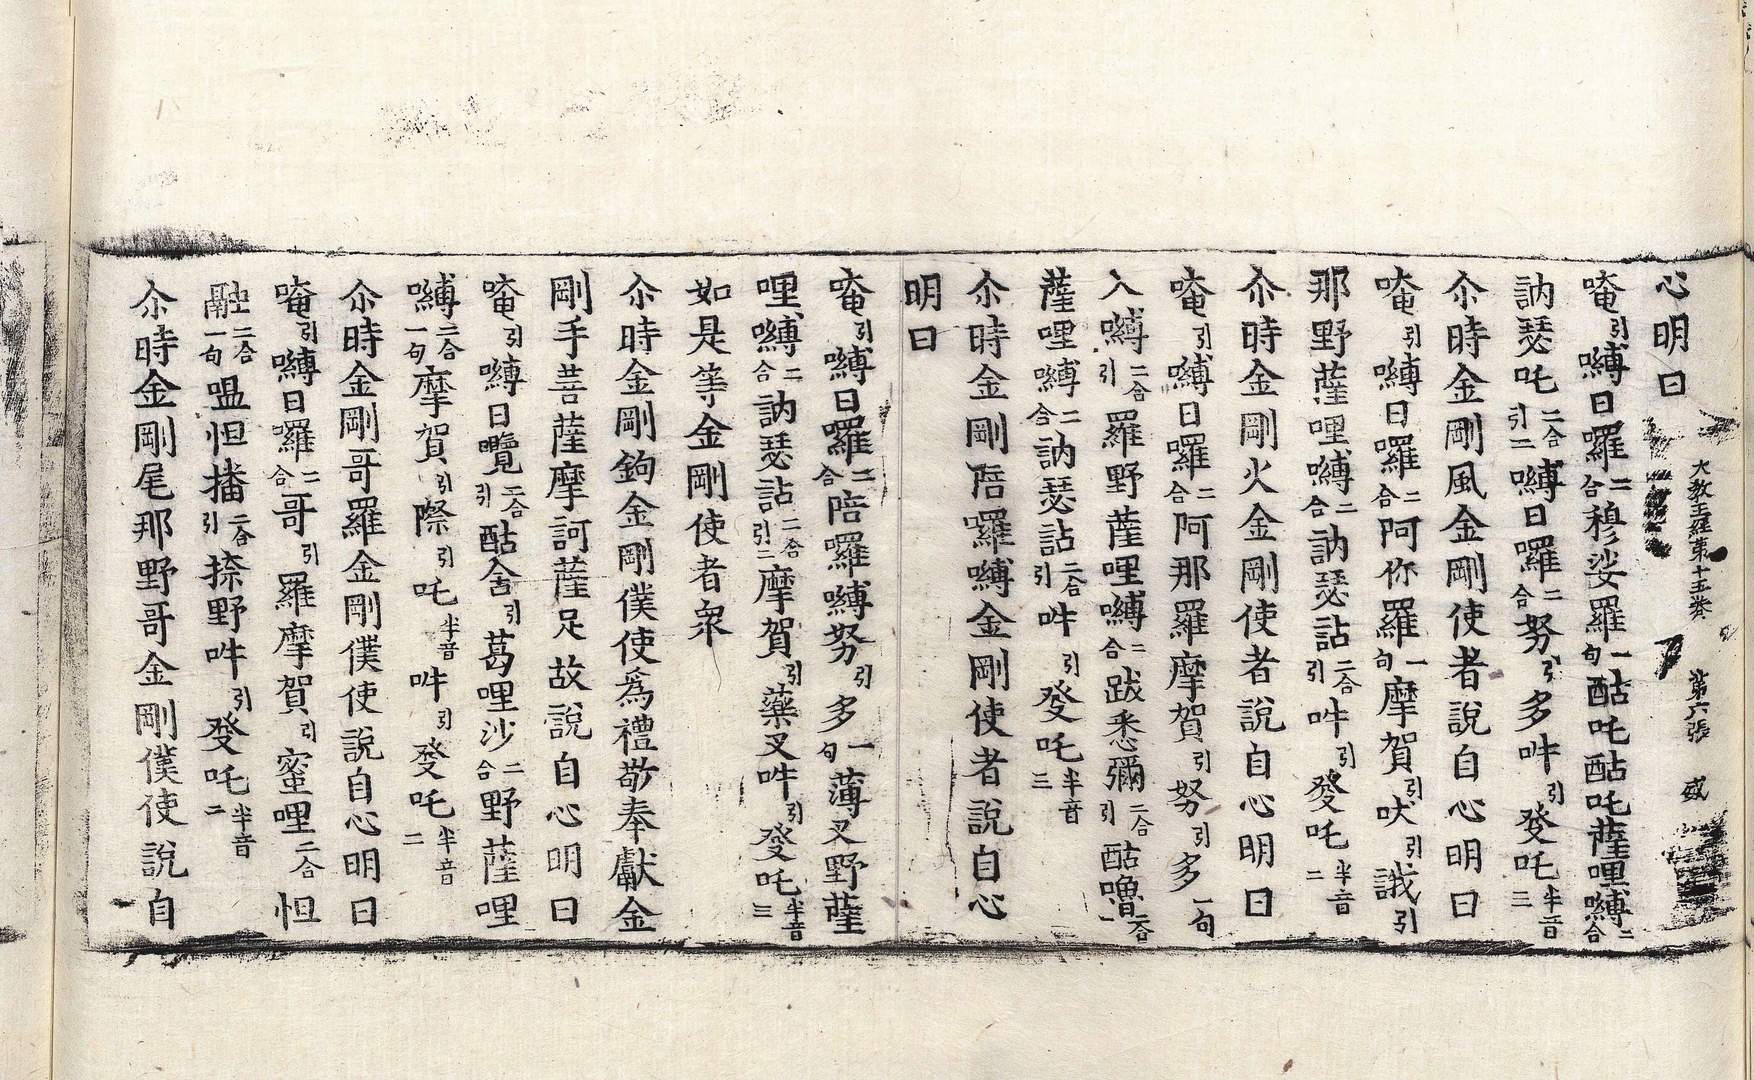 心明曰
大教王經第十五卷 第六張 盛
唵引嚩日囉二合穆娑羅一句酤吒酤吒薩哩嚩二合
訥瑟吒二合引二嚩日囉二合努引多吽引發吒半音三
尒時金剛風金剛使者說自心明曰
唵引嚩日囉二合阿你羅一句摩賀引吠引誐引
那野薩哩嚩二合訥瑟詀二合引吽引發吒半音二
尒時金剛火金剛使者說自心明曰
唵引嚩日囉二合阿那羅摩賀引努引多一句
入嚩二合引羅野薩哩嚩二合跋悉彌二合引酤嚕二合一
薩哩嚩二合訥瑟詀二合引吽引發吒半音三
尒時金剛陪囉嚩金剛使者說自心
明曰
唵引嚩日囉二合陪囉嚩努引多一句薄叉野薩
哩嚩二合訥瑟詀二合引二摩賀引藥叉吽引發吒半音三
如是等金剛使者衆
尒時金剛鉤金剛僕使爲禮敬奉獻金
剛手菩薩摩訶薩足故說自心明曰
唵引嚩日囕二合引酤舍引葛哩沙二合野薩哩
嚩二合一句摩賀引際引吒半音吽引發吒半音二
尒時金剛哥羅金剛僕使說自心明曰
唵引嚩日囉二合哥引羅摩賀引蜜哩二合怛
融二合一句嗢怛播二合引捺野吽引發吒半音二
尒時金剛尾那野哥金剛僕使說自